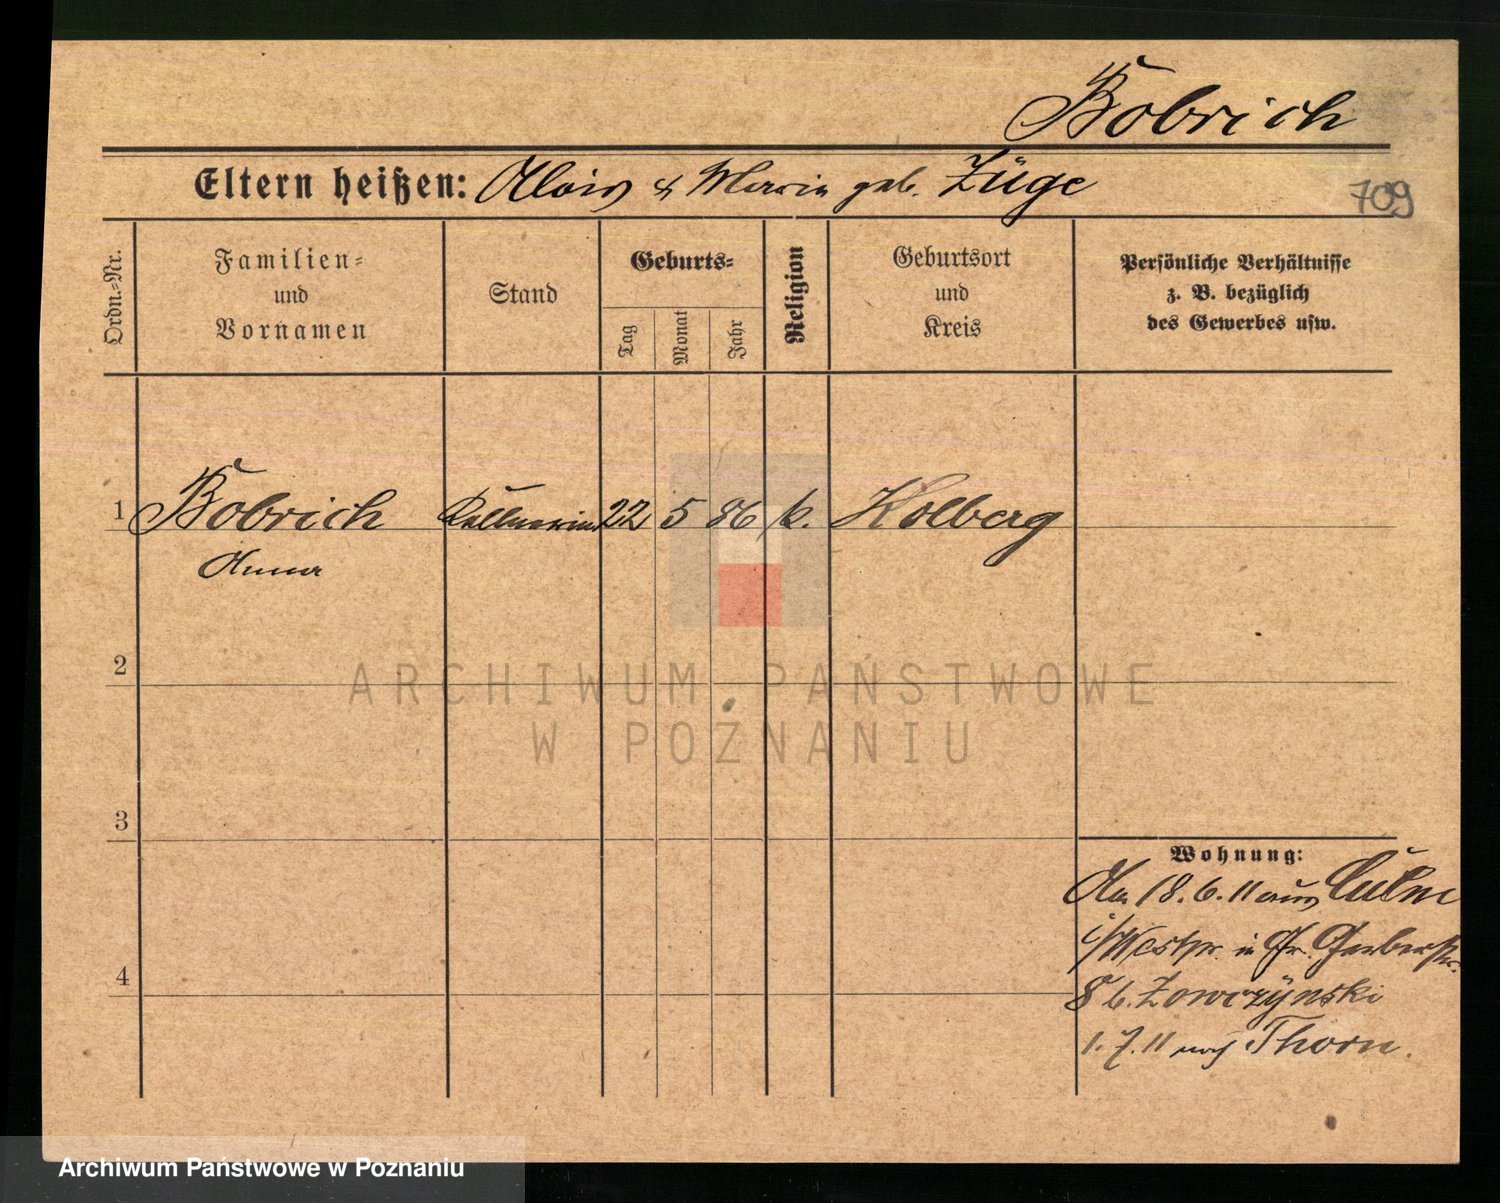 Bobrich
Eltern heißen: Alois & Maria geb. Züge
709
Ordn.=Nr.
Familien=
und
Vornamen
Stand
Geburts=
Tag
Monat
Jahr
Religion
Geburtsort
und
Kreis
Persönliche Verhältnisse
z. B. bezüglich
des Gewerbes usw.
1 Bobrich Kellnerin 22 5 86 k. Kolberg
Anna
2
ARCHIWUM PAŃSTWOWE
W POZNANIU
3
Wohnung:
Am 18.6.11 aus Culm
i/Westpr. in Gr. Gerberstr.
8 b. Zowczynski
1.7.11 nach Thorn.
4
Archiwum Państwowe w Poznaniu